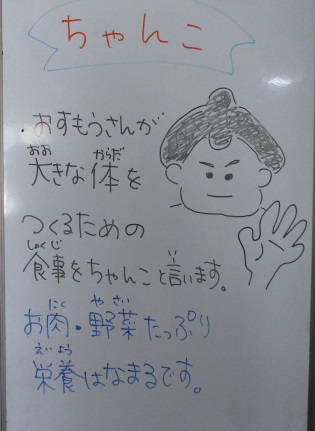 ちゃんこ
・おすもうさんが
おお からだ
大きな体を
つくるための
しょくじ い
食事をちゃんこと言います。
にく やさい
お肉・野菜たっぷり
えいよう
栄養はなまるです。